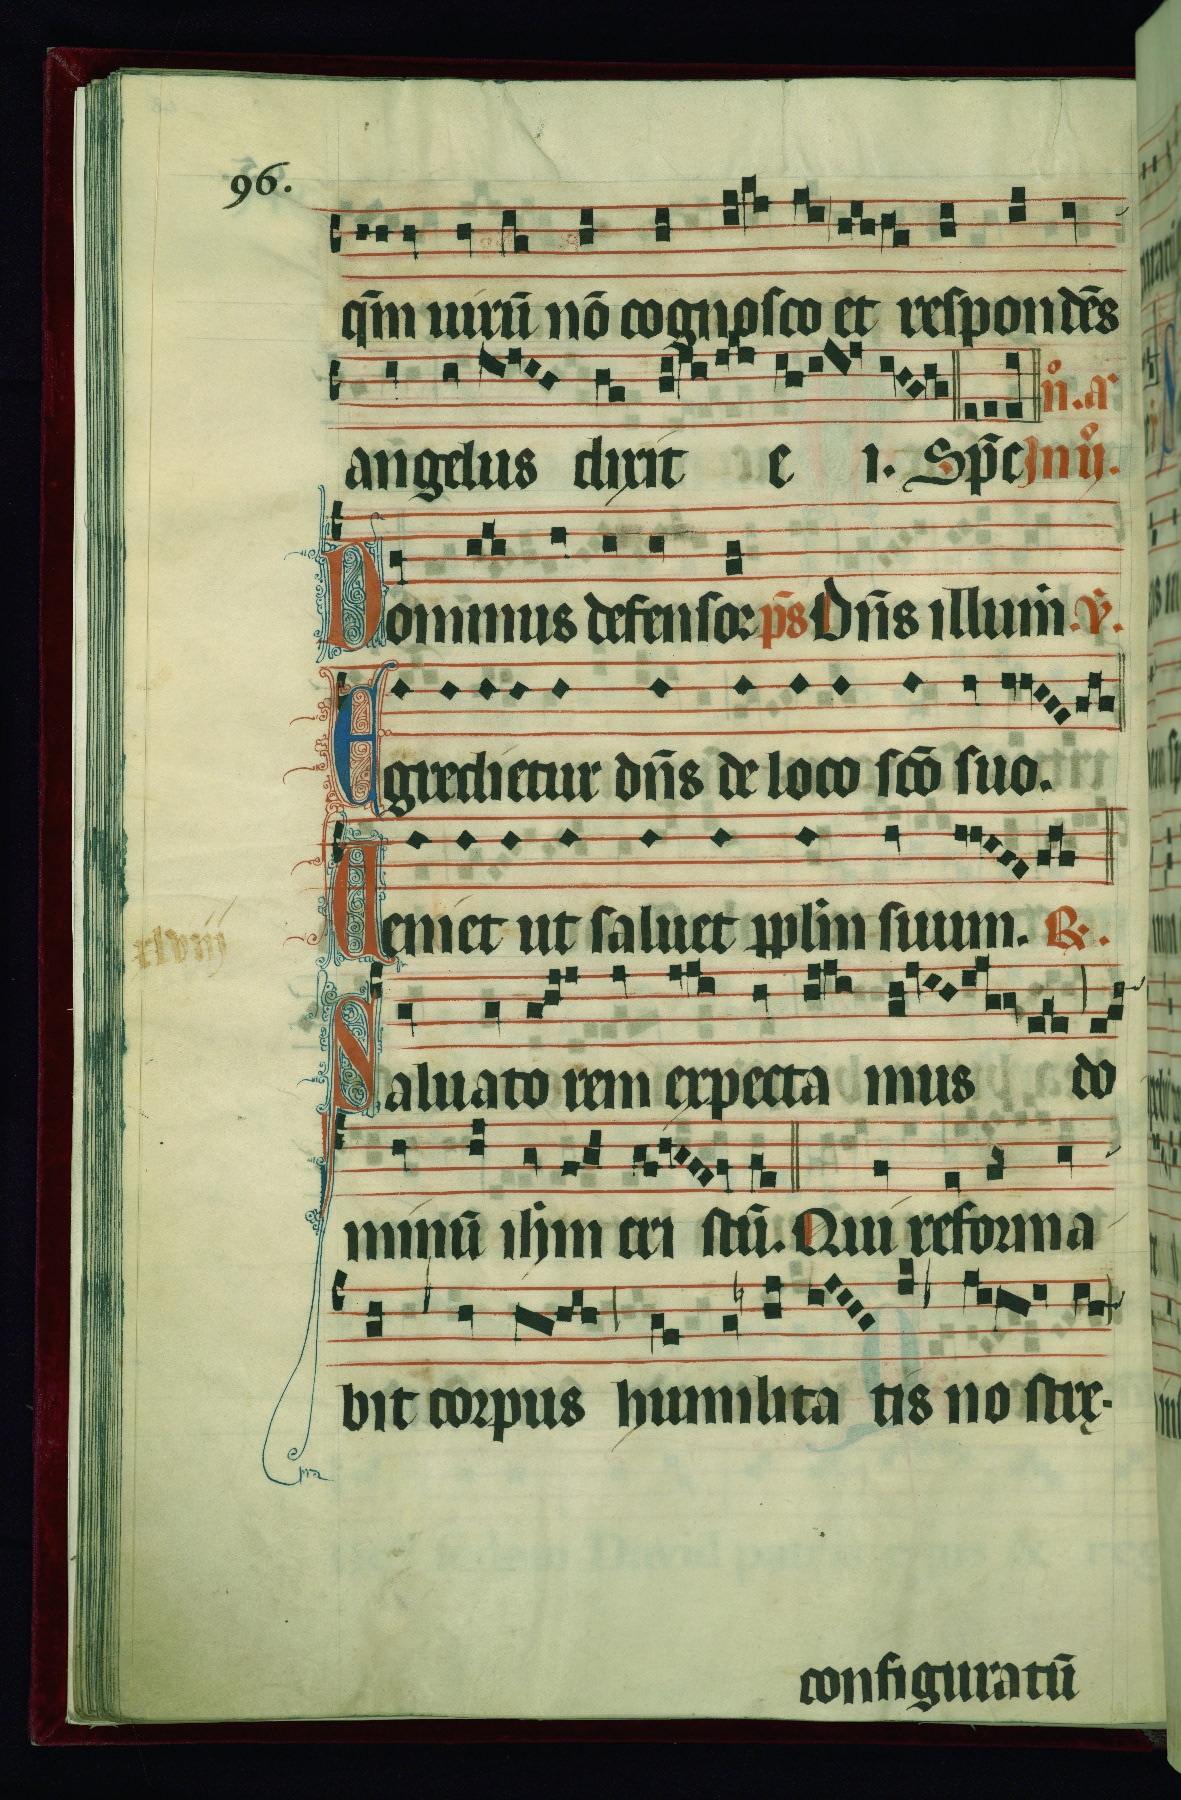 96.
qm̄ uirū nō cognosco et respondēs
n̊. a
angelus dixit e i. Spc̄ In ij̊.
Dominus defensor ps̄ Dn̄s illum̄. v̄.
Egredietur dn̄s de loco scō suo.
Ueniet ut saluet pplm̄ suum. R̷.
xlviij
Saluato rem expecta mus do
minū ihm̄ cri stū. Qui reforma
bit corpus humilita tis no strę.
configuratū